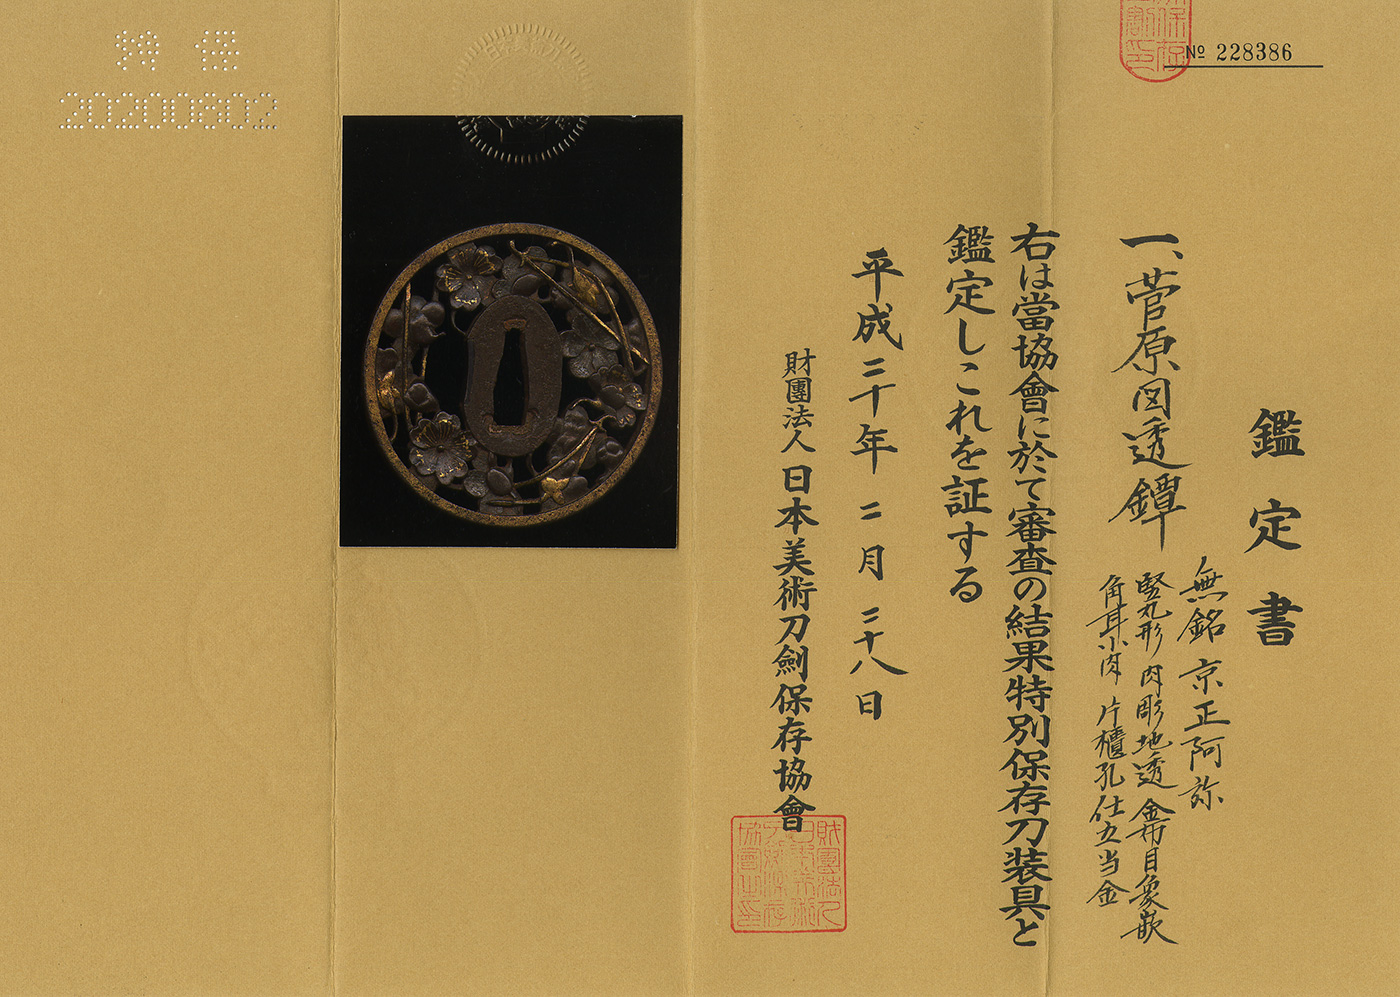 № 228386
鑑定書
一、菅原図透鐔
無銘 京正阿弥
竪丸形 肉彫地透 金布目象嵌
角耳小肉 片櫃孔 仕立当金
右は當協會に於て審査の結果特別保存刀装具と
鑑定しこれを証する
平成二十年二月二十八日
財團法人日本美術刀劍保存協會
20200802